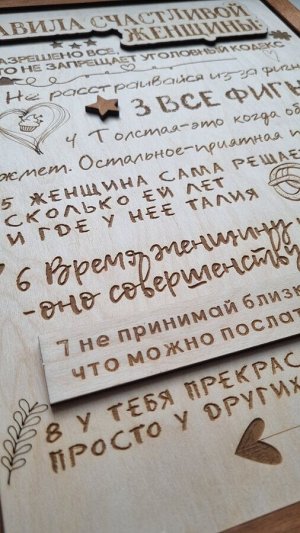 АВИЛА СЧАСТЛИВОЙ
ЖЕНЩИНЫ
РАЗРЕШЕНО ВСЕ,
ТО НЕ ЗАПРЕЩАЕТ УГОЛОВНЫЙ КОДЕКС
Не расстраивайся из-за фигн
3 ВСЕ ФИГН
4 Толстая-это когда об
жмет. Остальное-приятная п
5 ЖЕНЩИНА САМА РЕШАЕ
СКОЛЬКО ЕЙ ЛЕТ
И ГДЕ У НЕЕ ТАЛИЯ
6 Время женщину н
-оно совершенству
7 не принимай близк
что можно послат
8 У ТЕБЯ ПРЕКРАС
ПРОСТО У ДРУГИХ